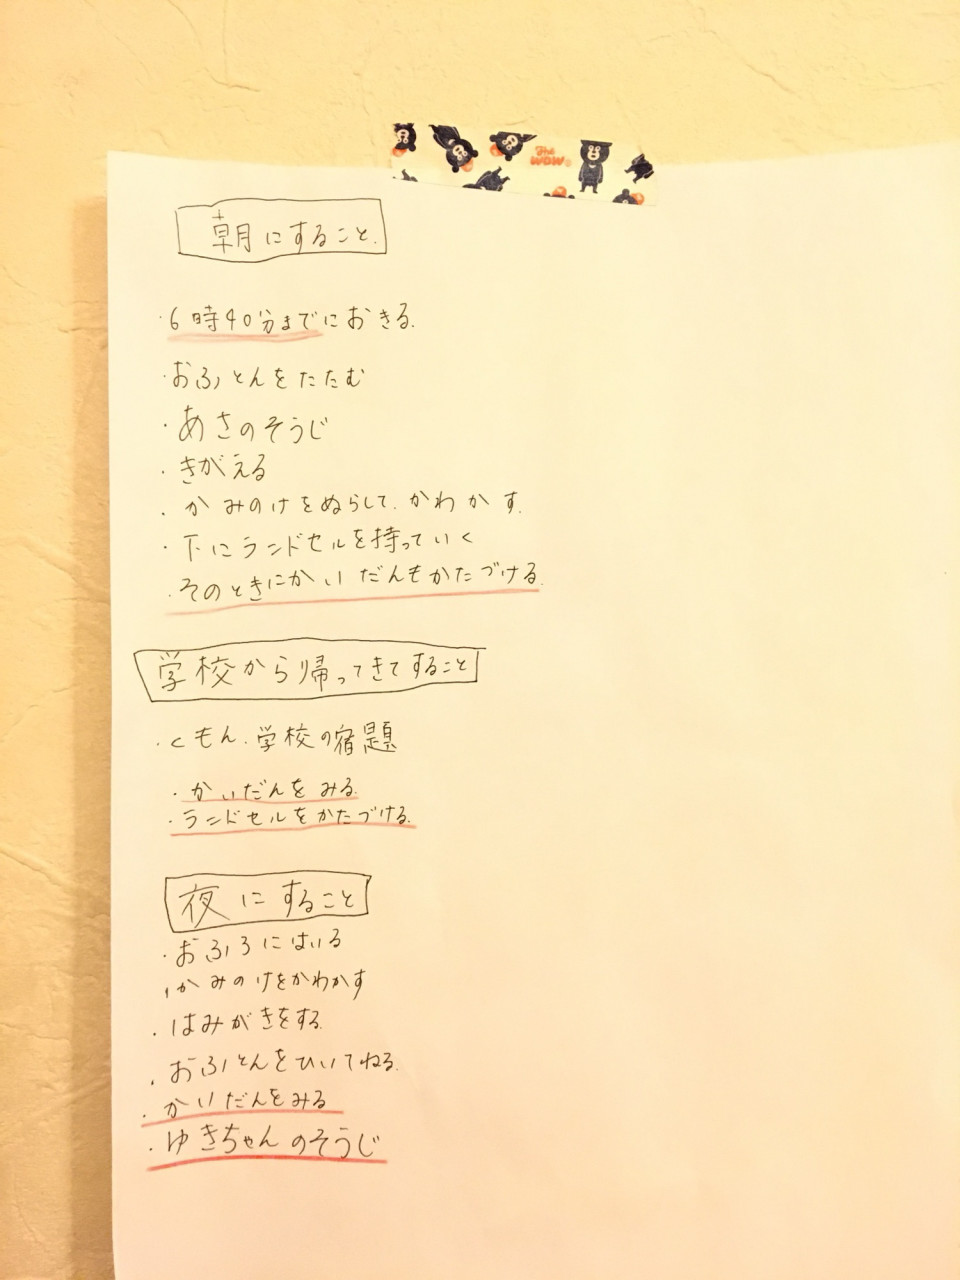 The
WOW
朝にすること.
・6時40分までにおきる.
・おふとんをたたむ
・あさのそうじ
・きがえる
・かみのけをぬらして.かわかす.
・下にランドセルを持っていく
・そのときにかいだんもかたづける.
学校から帰ってきてすること
・くもん.学校の宿題
・かいだんをみる.
・ランドセルをかたづける.
夜にすること
・おふろにはいる
・かみのけをかわかす
・はみがきをする.
・おふとんをひいてねる.
・かいだんをみる
・ゆきちゃんのそうじ